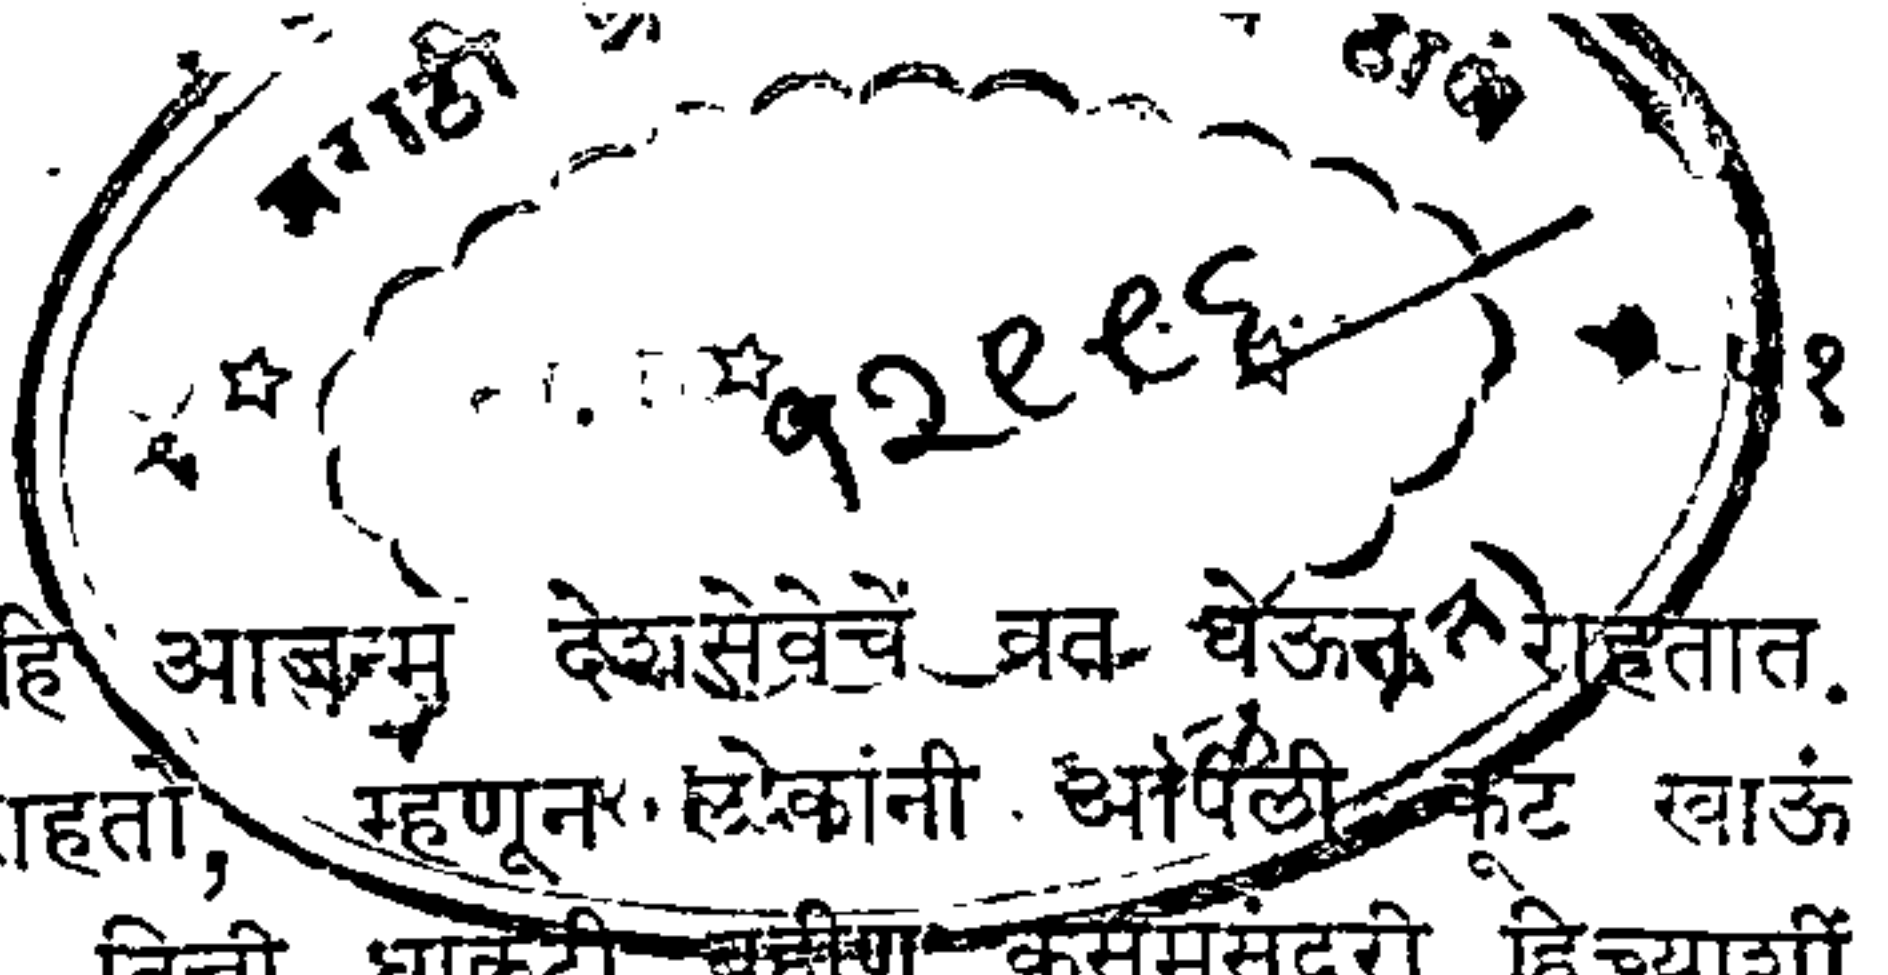 मराठी
१२९९६
५१
हि आजन्म देशसेवेचें व्रत घेऊन राहतात.
राहतो, म्हणून लोकांनी आपली कूट खाऊं
तिची धाकटी बहीण कुसुमसुंदरी हिच्याशीं